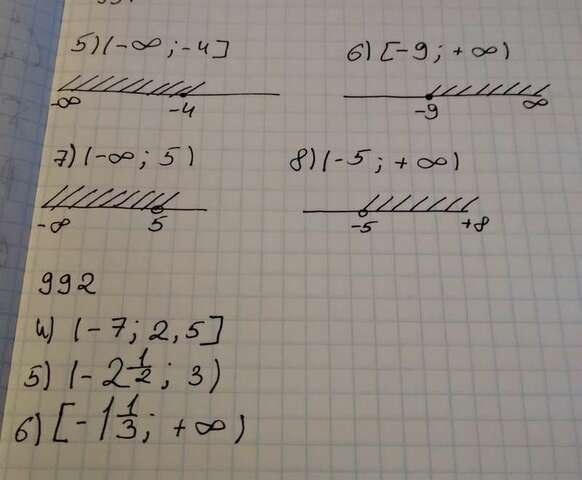 5) (-∞; -4]
6) [-9; +∞)
-∞ -4
-9 ∞
7) (-∞; 5)
8) (-5; +∞)
-∞ 5
-5 +∞
992
4) (-7; 2,5]
5) (-2 1/2; 3)
6) [-1 1/3; +∞)